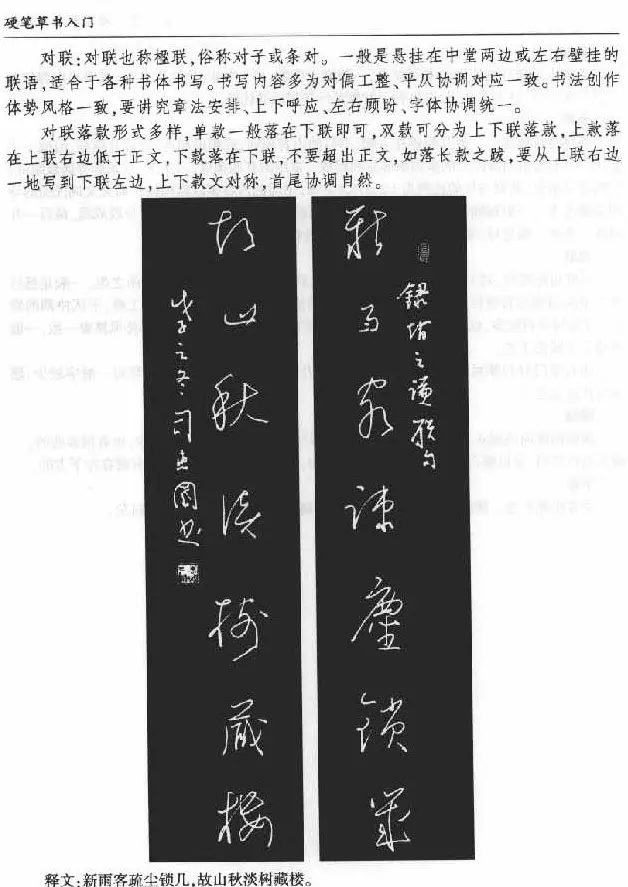 硬笔草书入门
对联:对联也称楹联,俗称对子或条对。一般是悬挂在中堂两边或左右壁挂的
联语,适合于各种书体书写。书写内容多为对偶工整、平仄协调对应一致。书法创作
体势风格一致,要讲究章法安排、上下呼应、左右顾盼、字体协调统一。
对联落款形式多样,单款一般落在下联即可,双款可分为上下联落款,上款落
在上联右边低于正文,下款落在下联,不要超出正文,如落长款之跋,要从上联右边
一地写到下联左边,上下款文对称,首尾协调自然。
新雨客疏尘锁几
故山秋淡树藏楼
戊子之冬司惠国书
释文:新雨客疏尘锁几,故山秋淡树藏楼。